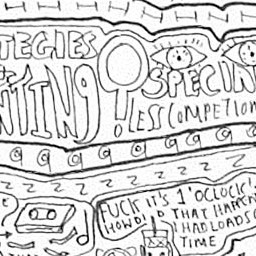 TEGIES
NTING!
SPECIA
LESS COMPETION
Z Z Z Z Z Z Z Z Z Z Z
FUCK IT'S 1 'OCLOCK!
HOW DID THAT HAPPEN
I HAD LOADS O
TIME